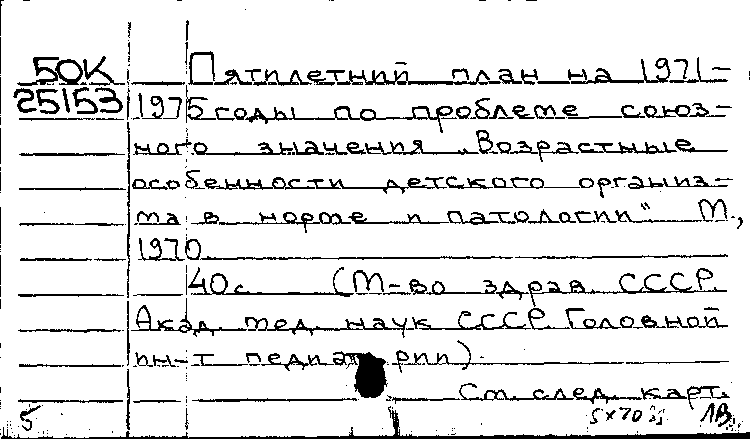 50К
25153
Пятилетний план на 1971-
1975 годы по проблеме союз-
ного значения „Возрастные
особенности детского организ-
ма в норме и патологии“ М.,
1970.
40с. (М-во здрав. СССР.
Акад. мед. наук СССР. Головной
ин-т педиатрии).
См. след. карт.
5
5х70
ЛВ